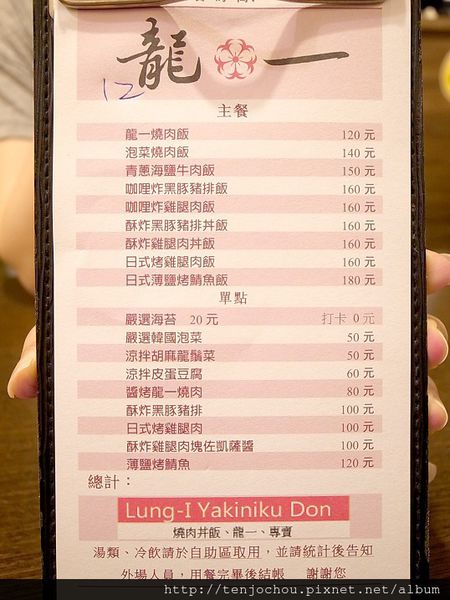 龍一
12
主餐
龍一燒肉飯 120 元
泡菜燒肉飯 140 元
青蔥海鹽牛肉飯 150 元
咖哩炸黑豚豬排飯 160 元
咖哩炸雞腿肉飯 160 元
酥炸黑豚豬排丼飯 160 元
酥炸雞腿肉丼飯 160 元
日式烤雞腿肉飯 160 元
日式薄鹽烤鯖魚飯 180 元
單點
嚴選海苔 20 元 打卡 0 元
嚴選韓國泡菜 50 元
涼拌胡麻龍鬚菜 50 元
涼拌皮蛋豆腐 60 元
醬烤龍一燒肉 80 元
酥炸黑豚豬排 100 元
日式烤雞腿肉 100 元
酥炸雞腿肉塊佐凱薩醬 100 元
薄鹽烤鯖魚 120 元
總計：
Lung-I Yakiniku Don
燒肉丼飯、龍一、專賣
湯類、冷飲請於自助區取用，並請統計後告知
外場人員，用餐完畢後結帳 謝謝您
http://tenjochou.pixnet.net/album